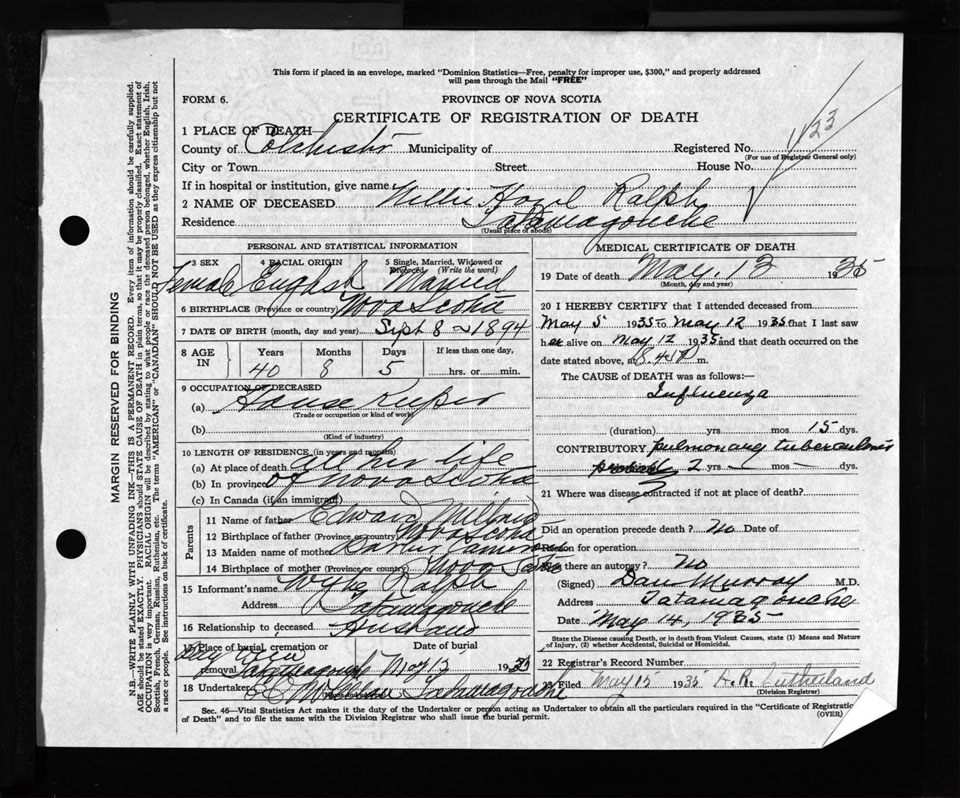 This form if placed in an envelope, marked "Dominion Statistics—Free, penalty for improper use, $300," and properly addressed
will pass through the Mail "FREE"
FORM 6.
PROVINCE OF NOVA SCOTIA
CERTIFICATE OF REGISTRATION OF DEATH
1 PLACE OF DEATH—
County of Colchester Municipality of Registered No. 1123
(For use of Registrar General only)
City or Town Street House No.
If in hospital or institution, give name
2 NAME OF DECEASED Nellie Hazel Ralph
Residence Tatamagouche
(Usual place of abode)
PERSONAL AND STATISTICAL INFORMATION
3 SEX 4 RACIAL ORIGIN 5 Single, Married, Widowed or Divorced (Write the word)
Female English Married
6 BIRTHPLACE (Province or country) Nova Scotia
7 DATE OF BIRTH (month, day and year) Sept 8 1894
8 AGE IN Years Months Days If less than one day,
40 8 5 hrs. or min.
9 OCCUPATION OF DECEASED
(a) House Keeper
(Trade or occupation or kind of work)
(b)
(Kind of industry)
10 LENGTH OF RESIDENCE (in years and months)
(a) At place of death all his life
(b) In province of Nova Scotia
(c) In Canada (if an immigrant)
Parents
11 Name of father Edward
12 Birthplace of father (Province or country) Nova Scotia
13 Maiden name of mother
14 Birthplace of mother (Province or country) Nova Scotia
15 Informant's name Ralph
Address Tatamagouche
16 Relationship to deceased Husband
17 Place of burial, cremation or removal Date of burial
Tatamagouche May 1935
18 Undertaker Tatamagouche
MEDICAL CERTIFICATE OF DEATH
19 Date of death May. 13 1935
(Month, day and year)
20 I HEREBY CERTIFY that I attended deceased from
May 5 1935 to May 12 1935 that I last saw
her alive on May 12 1935 and that death occurred on the
date stated above, at m.
The CAUSE OF DEATH was as follows:—
Influenza
(duration) yrs. mos 15 dys.
CONTRIBUTORY pulmonary tuberculosis
2 yrs. mos dys.
21 Where was disease contracted if not at place of death?
Did an operation precede death? No Date of
Reason for operation
Was there an autopsy? No
(Signed) Dan Murray M.D.
Address Tatamagouche
Date May 14, 1935
State the Disease causing Death, or in death from Violent Causes, state (1) Means and Nature
of Injury, (2) whether Accidental, Suicidal or Homicidal.
22 Registrar's Record Number
23 Filed May 15 1935 Sutherland
(Division Registrar)
Sec. 46—Vital Statistics Act makes it the duty of the Undertaker or person acting as Undertaker to obtain all the particulars required in the "Certificate of Registration
of Death" and to file the same with the Division Registrar who shall issue the burial permit.
(OVER)
MARGIN RESERVED FOR BINDING
N.B.—WRITE PLAINLY WITH UNFADING INK—THIS IS A PERMANENT RECORD. Every item of information should be carefully supplied.
AGE should be stated EXACTLY. PHYSICIANS should STATE CAUSE OF DEATH in plain terms, so that it may be properly classified. Exact statement of
OCCUPATION is very important. RACIAL ORIGIN will be described by stating to what people or race the deceased person belonged, whether English, Irish,
Scottish, French, German, Russian, Ruthenian, etc. The terms "AMERICAN" or "CANADIAN" SHOULD NOT BE USED as they express citizenship but not
a race or people. See instructions on back of certificate.